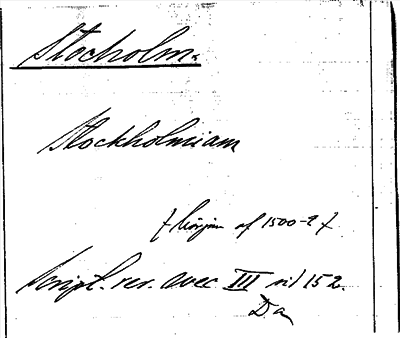 Stocholm.
Stockholmiam
(början af 1500-t)
Script. rer. svec III sid 152.
Da